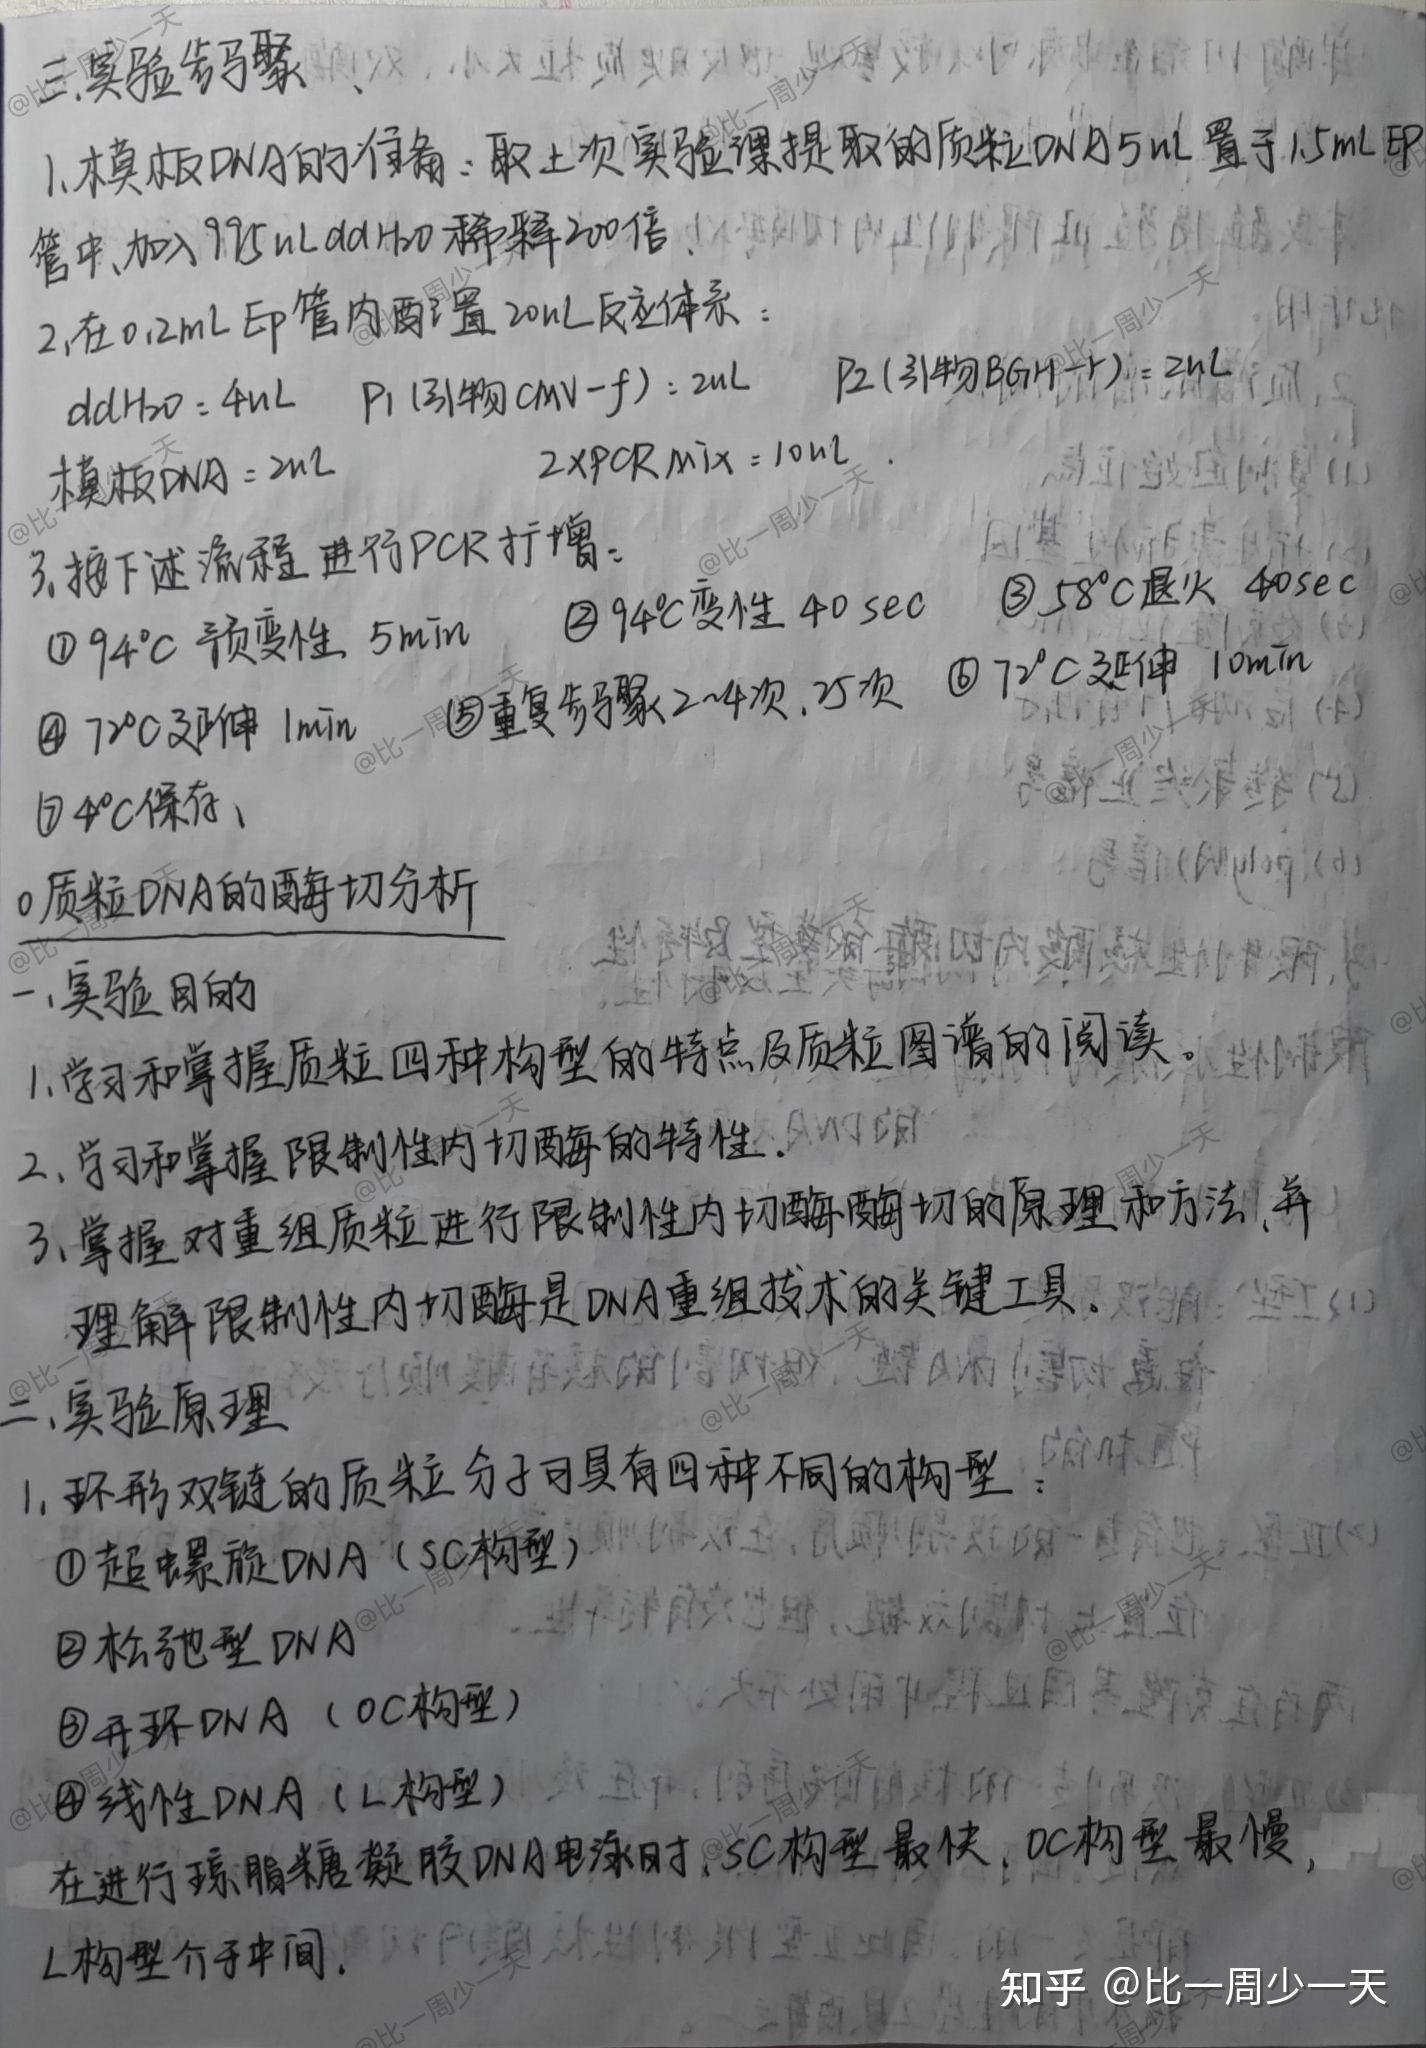 三、实验步骤
1、模板DNA的准备：取上次实验课提取的质粒DNA 5uL 置于1.5mL EP
管中、加入995uL ddH2O 稀释200倍.
2、在0.2mL Ep管内配置20uL反应体系：
ddH2O：4uL P1（引物CMV-f）：2uL P2（引物BGH-r）：2uL
模板DNA：2uL 2xPCR mix：10uL.
3、按下述流程进行PCR扩增：
①94℃ 预变性 5min ②94℃变性 40sec ③58℃退火 40sec
④72℃延伸 1min ⑤重复步骤2~4次、25次 ⑥72℃延伸 10min
⑦4℃保存、
○质粒DNA的酶切分析
一、实验目的
1、学习和掌握质粒四种构型的特点及质粒图谱的阅读。
2、学习和掌握限制性内切酶的特性.
3、掌握对重组质粒进行限制性内切酶酶切的原理和方法、并
理解限制性内切酶是DNA重组技术的关键工具.
二、实验原理
1、环形双链的质粒分子可具有四种不同的构型：
①超螺旋DNA（SC构型）
②松弛型DNA
③开环DNA（OC构型）
④线性DNA（L构型）
在进行琼脂糖凝胶DNA电泳时、SC构型最快、OC构型最慢，
L构型介于中间.
知乎 @比一周少一天